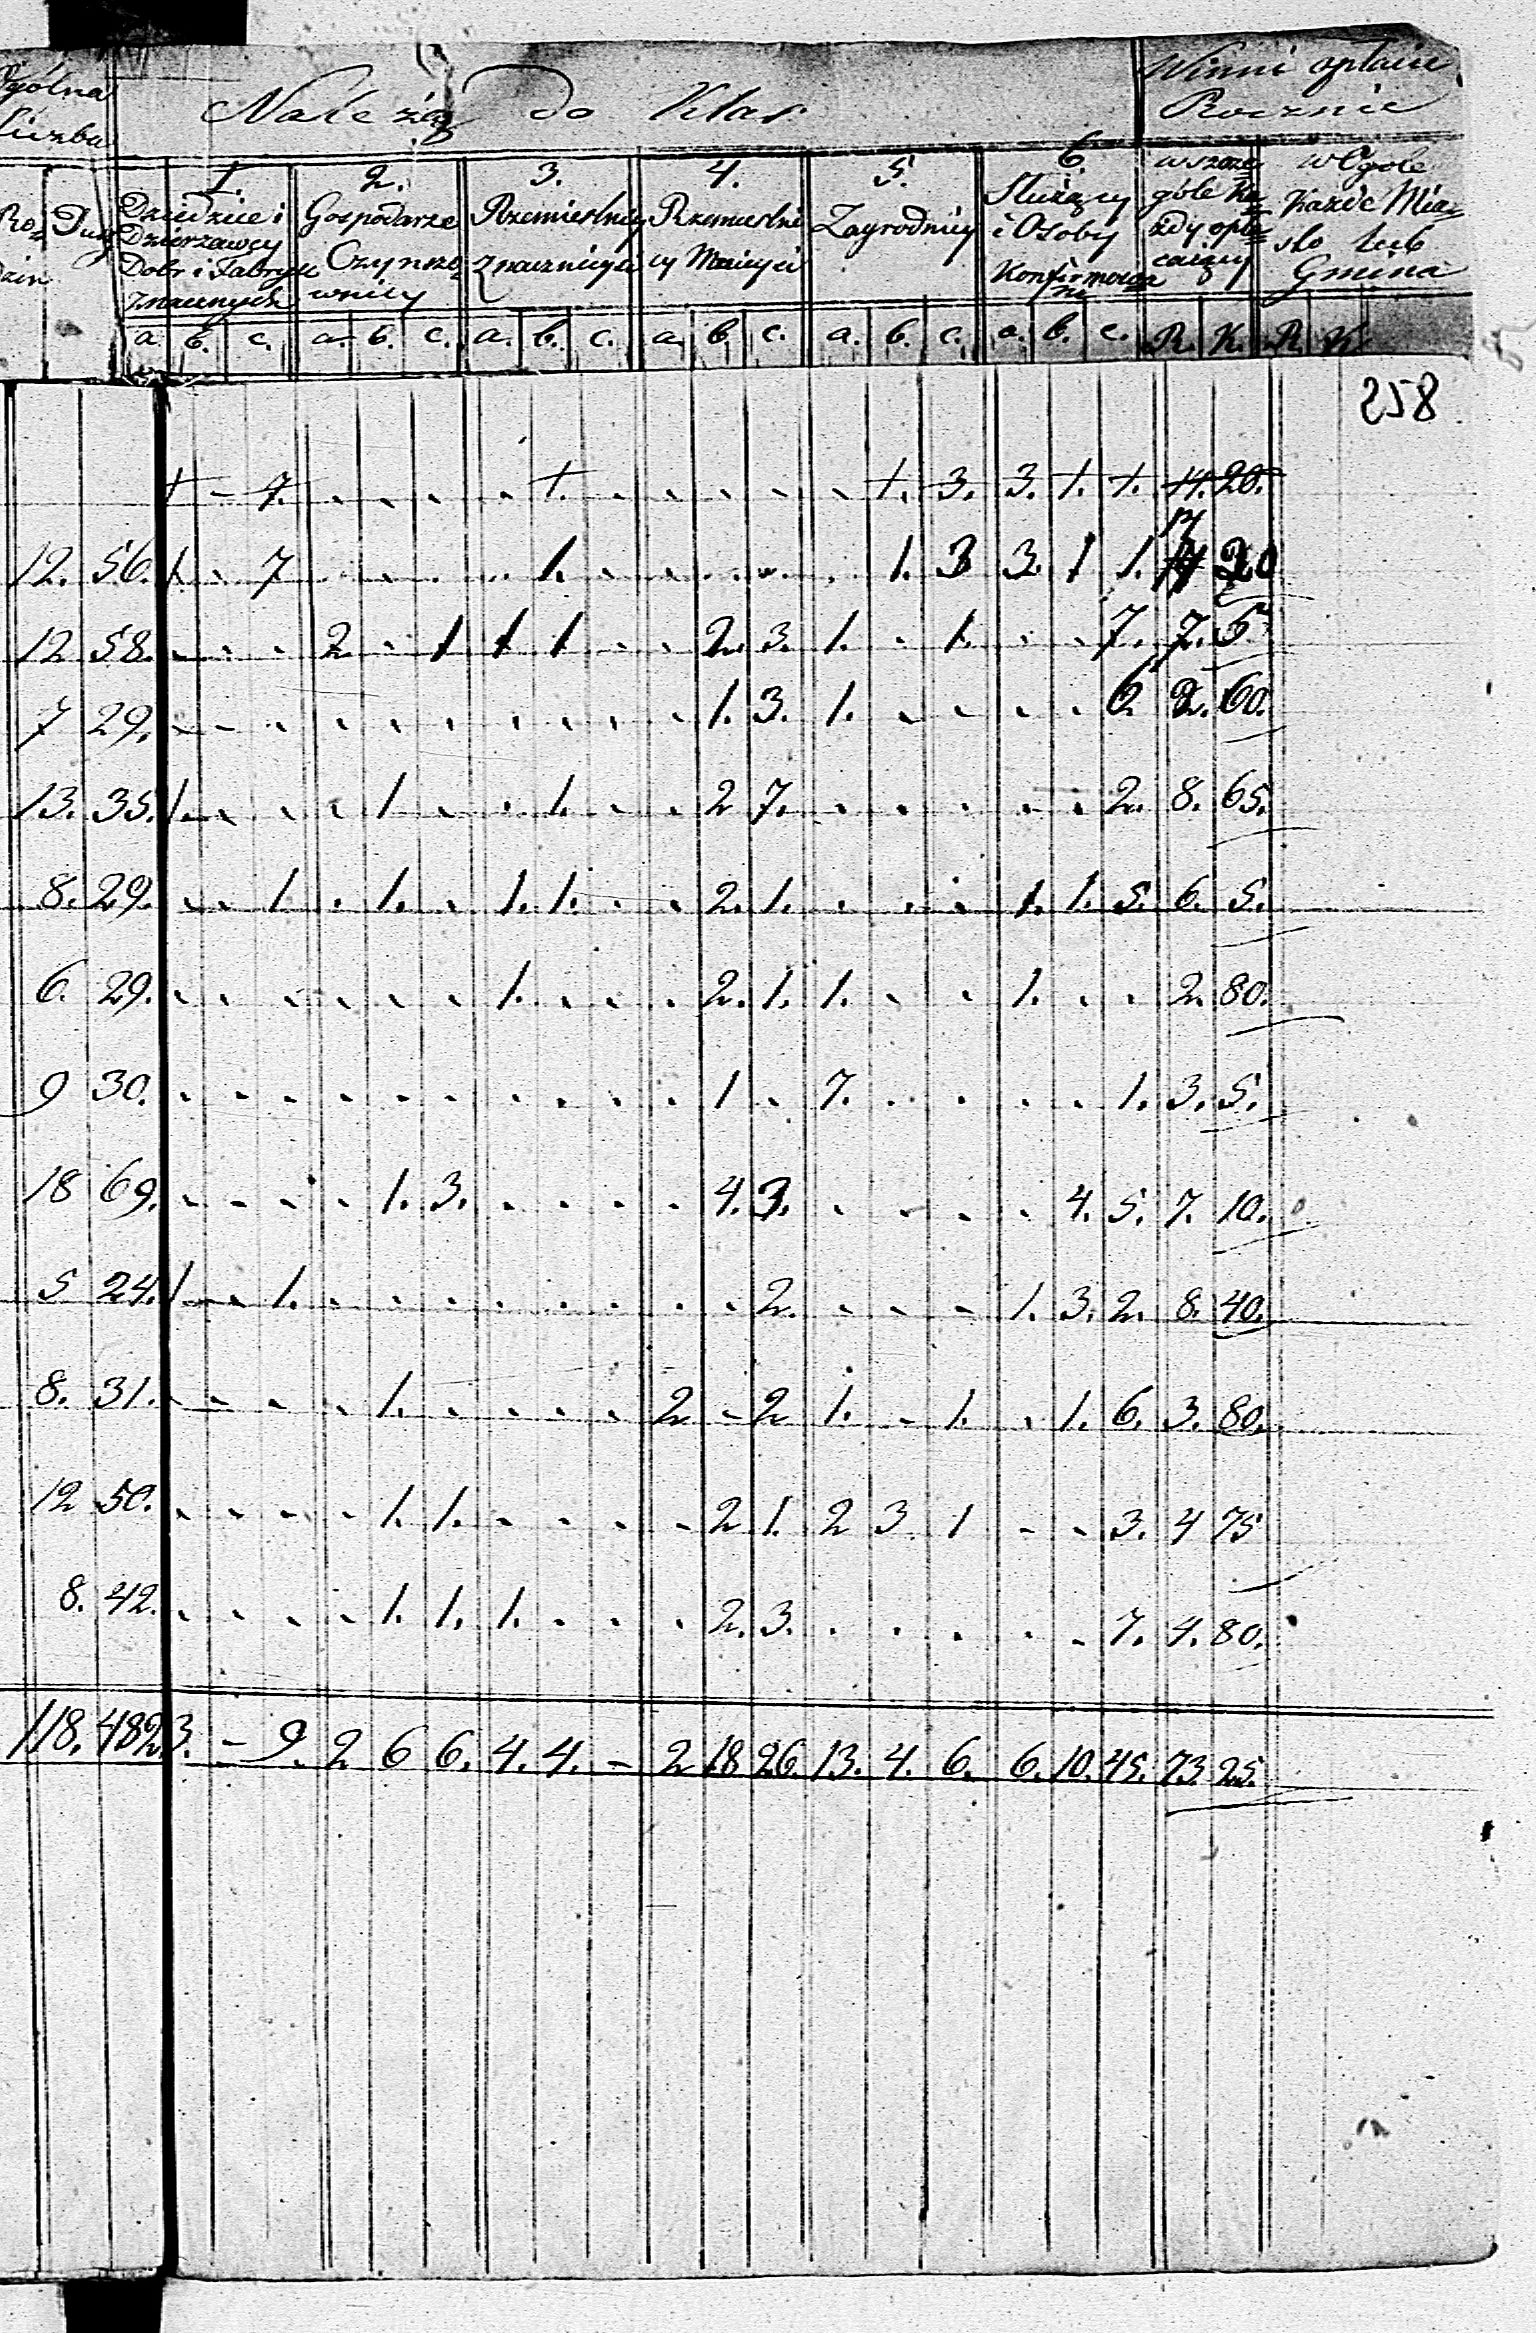 Ogólna Liczba
Należą do Klas
Winni opłacić Rocznie
Ro= dzin
Dusz
1. Dziedzice i Dzierzawcy Dobr i Fabryk znacznych
2. Gospodarze Czynszo= wnicy
3. Rzemieslnicy Znaczniejsi
4. Rzemieslni cy Mniejsi
5. Zagrodnicy
6. Służący i Osoby
w szcze= góle Ka= żdy opła= cający
w Ogóle Każde Mia= sto lub Gmina
a. b. c. a. b. c. a. b. c. a. b. c. a. b. c. a. b. c. R. K. R. K.
258
1 - 7. . . . . 1. . . . . . . 1. 3. 3. 1. 1. 14. 20.
12. 56. 1. - 7 . . . . . 1. . . . . . . 1. 3 3. 1 1. 20
12 58. . . . 2. - 1 1 1 . . 2. 3. 1. . 1. . . 7. 7. 5
7 29. . . . . . . . . . . 1. 3. 1. . . . . 6. 2. 60.
13. 35. 1. . . . 1 . . 1. . . 2 7. . . . . . 2. 8. 65.
8. 29. . . 1. . 1. . 1. 1. . . 2. 1. . . . 1. 1. 5. 6. 5.
6. 29. . . . . . . 1. . . . 2. 1. 1. . . 1. . . 2. 80.
9 30. . . . . . . . . . . 1 . 7. . . . . 1. 3. 5.
18 69. . . . . 1. 3. . . . . 4. 3. . . . . 4. 5. 7. 10.
5 24. 1 . 1. . . . . . . . . 2. . . . 1. 3. 2. 8. 40.
8. 31. . . . . 1. . . . . 2 - 2 1. - 1. . 1. 6. 3. 80.
12 50. . . . . 1. 1. . . . . 2 1. 2 3 1 - - 3. 4 75
8. 42. . . . . 1. 1. 1. . . . 2. 3. . . . . . 7. 4. 80.
118. 482. 3. - 9. 2 6 6. 4. 4. - 2 18 26. 13. 4. 6. 6. 10. 45. 73 25.